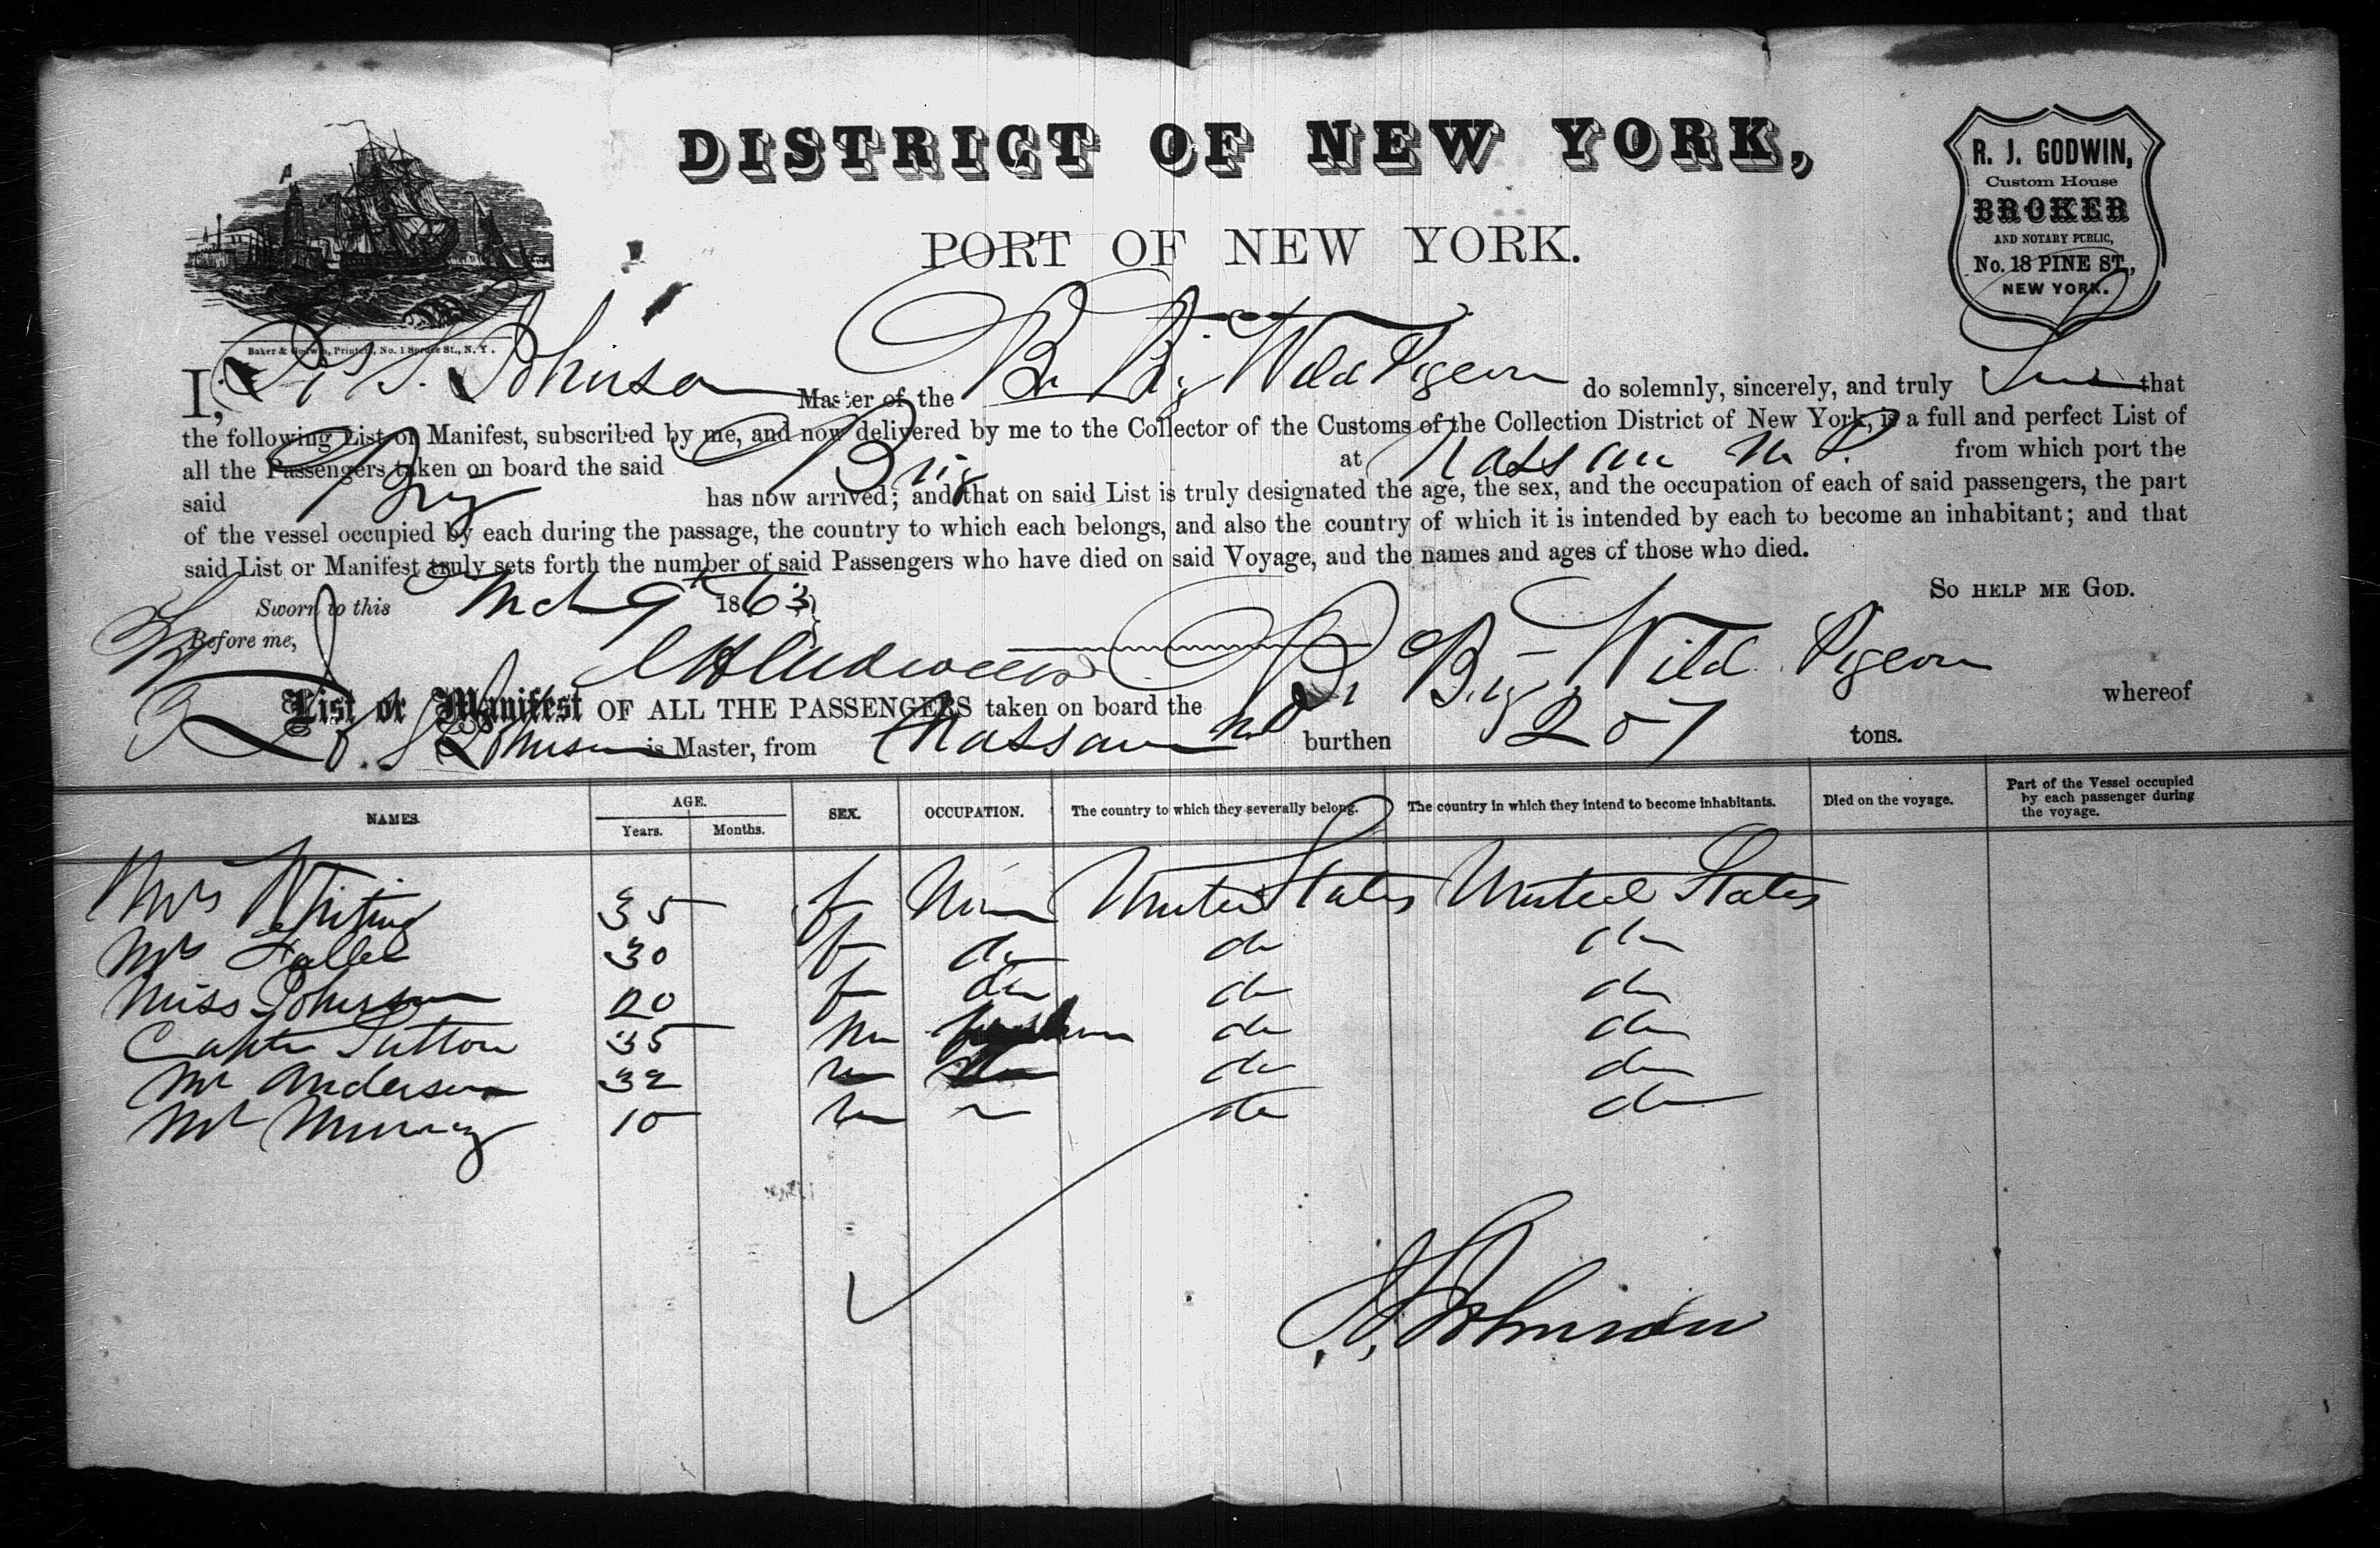 DISTRICT OF NEW YORK,
PORT OF NEW YORK.
R. J. GODWIN,
Custom House
BROKER
AND NOTARY PUBLIC,
No. 18 PINE ST.,
NEW YORK.
Baker & Godwin, Printers, No. 1 Spruce St., N. Y.
I, S. Johnson Master of the Br Brig Wild Pigeon do solemnly, sincerely, and truly that
the following List or Manifest, subscribed by me, and now delivered by me to the Collector of the Customs of the Collection District of New York, is a full and perfect List of
all the Passengers taken on board the said Brig at Nassau N. P. from which port the
said Brig has now arrived; and that on said List is truly designated the age, the sex, and the occupation of each of said passengers, the part
of the vessel occupied by each during the passage, the country to which each belongs, and also the country of which it is intended by each to become an inhabitant; and that
said List or Manifest truly sets forth the number of said Passengers who have died on said Voyage, and the names and ages of those who died.
So help me God.
Sworn to this Mch 9th 1863
Before me,
List or Manifest OF ALL THE PASSENGERS taken on board the Br Brig Wild Pigeon whereof
S Johnson is Master, from Nassau NP burthen 207 tons.
NAMES. AGE. Years. Months. SEX. OCCUPATION. The country to which they severally belong. The country in which they intend to become inhabitants. Died on the voyage. Part of the Vessel occupied by each passenger during the voyage.
Mrs Whiting 35 f None United States United States
Mrs 30 f do do do
Miss Johnson 20 f do do do
Captn Sutton 35 m do do
Mr Anderson 32 m do do
Mr Murray 10 m do do
S. Johnson